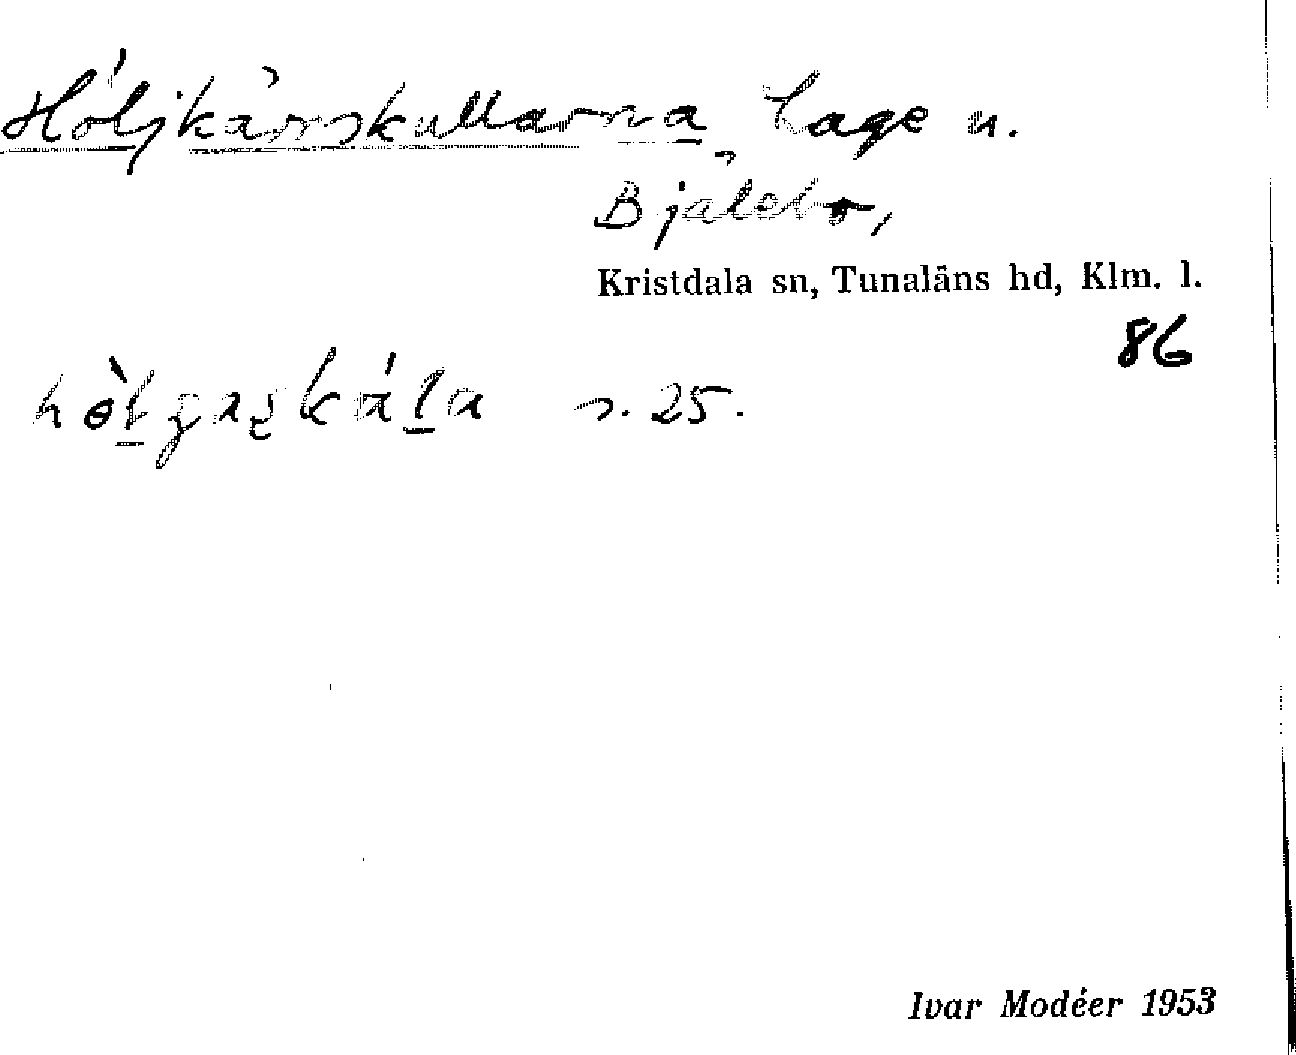 Höljkärrskullarna Hage u.
Bjälebo,
Kristdala sn, Tunaläns hd, Klm. l.
86
s. 25.
Ivar Modéer 1953